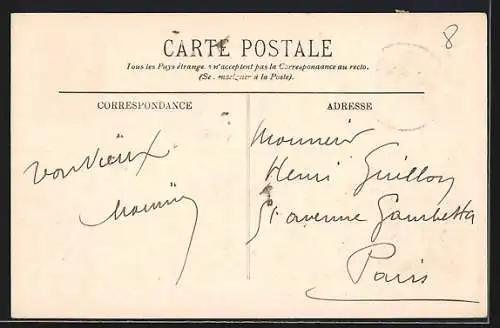 8
CARTE POSTALE
Tous les Pays étrangers n'acceptent pas la Correspondance au recto.
(Se renseigner à la Poste).
CORRESPONDANCE
ADRESSE
Monsieur
Henri Guillon
avenue Gambetta
Paris